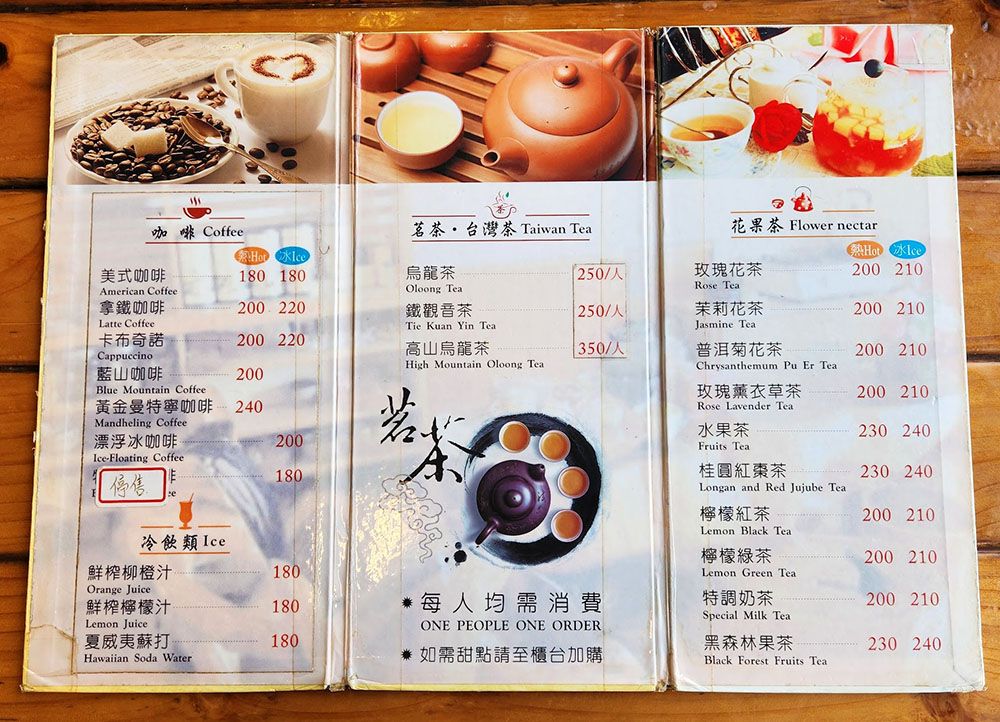 咖啡 Coffee
熱Hot 冰Ice
美式咖啡 180 180
American Coffee
拿鐵咖啡 200 220
Latte Coffee
卡布奇諾 200 220
Cappuccino
藍山咖啡 200
Blue Mountain Coffee
黃金曼特寧咖啡 240
Mandheling Coffee
漂浮冰咖啡 200
Ice-Floating Coffee
停售 180
冷飲類 Ice
鮮榨柳橙汁 180
Orange Juice
鮮榨檸檬汁 180
Lemon Juice
夏威夷蘇打 180
Hawaiian Soda Water
茗茶・台灣茶 Taiwan Tea
烏龍茶 250/人
Oloong Tea
鐵觀音茶 250/人
Tie Kuan Yin Tea
高山烏龍茶 350/人
High Mountain Oloong Tea
茗茶
* 每人均需消費
ONE PEOPLE ONE ORDER
* 如需甜點請至櫃台加購
花果茶 Flower nectar
熱Hot 冰Ice
玫瑰花茶 200 210
Rose Tea
茉莉花茶 200 210
Jasmine Tea
普洱菊花茶 200 210
Chrysanthemum Pu Er Tea
玫瑰薰衣草茶 200 210
Rose Lavender Tea
水果茶 230 240
Fruits Tea
桂圓紅棗茶 230 240
Longan and Red Jujube Tea
檸檬紅茶 200 210
Lemon Black Tea
檸檬綠茶 200 210
Lemon Green Tea
特調奶茶 200 210
Special Milk Tea
黑森林果茶 230 240
Black Forest Fruits Tea